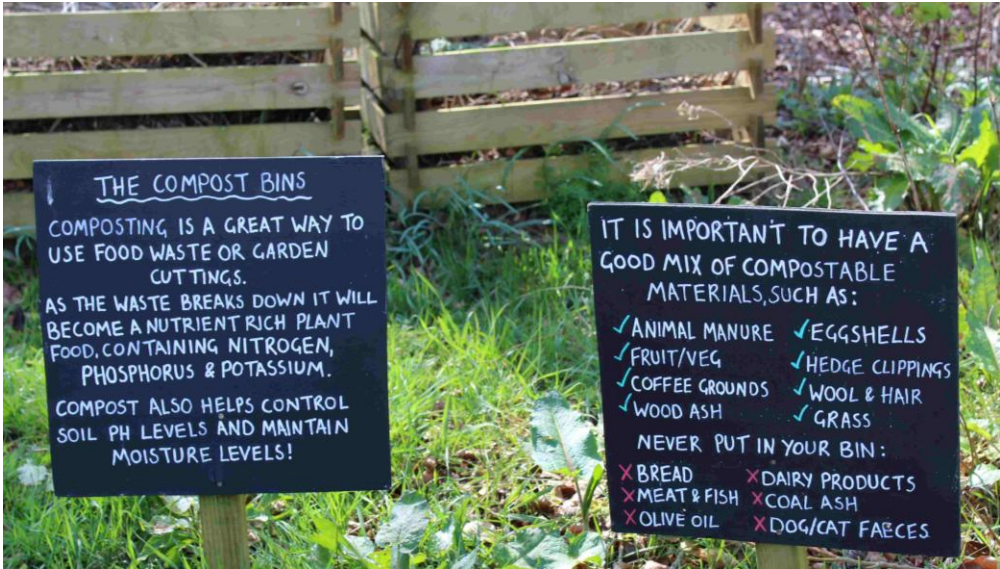 THE COMPOST BINS
COMPOSTING IS A GREAT WAY TO
USE FOOD WASTE OR GARDEN
CUTTINGS.
AS THE WASTE BREAKS DOWN IT WILL
BECOME A NUTRIENT RICH PLANT
FOOD, CONTAINING NITROGEN,
PHOSPHORUS & POTASSIUM.
COMPOST ALSO HELPS CONTROL
SOIL PH LEVELS AND MAINTAIN
MOISTURE LEVELS!
IT IS IMPORTANT TO HAVE A
GOOD MIX OF COMPOSTABLE
MATERIALS, SUCH AS:
✓ANIMAL MANURE ✓EGGSHELLS
✓FRUIT/VEG ✓HEDGE CLIPPINGS
✓COFFEE GROUNDS ✓WOOL & HAIR
✓WOOD ASH ✓GRASS
NEVER PUT IN YOUR BIN:
✗BREAD ✗DAIRY PRODUCTS
✗MEAT & FISH ✗COAL ASH
✗OLIVE OIL ✗DOG/CAT FAECES